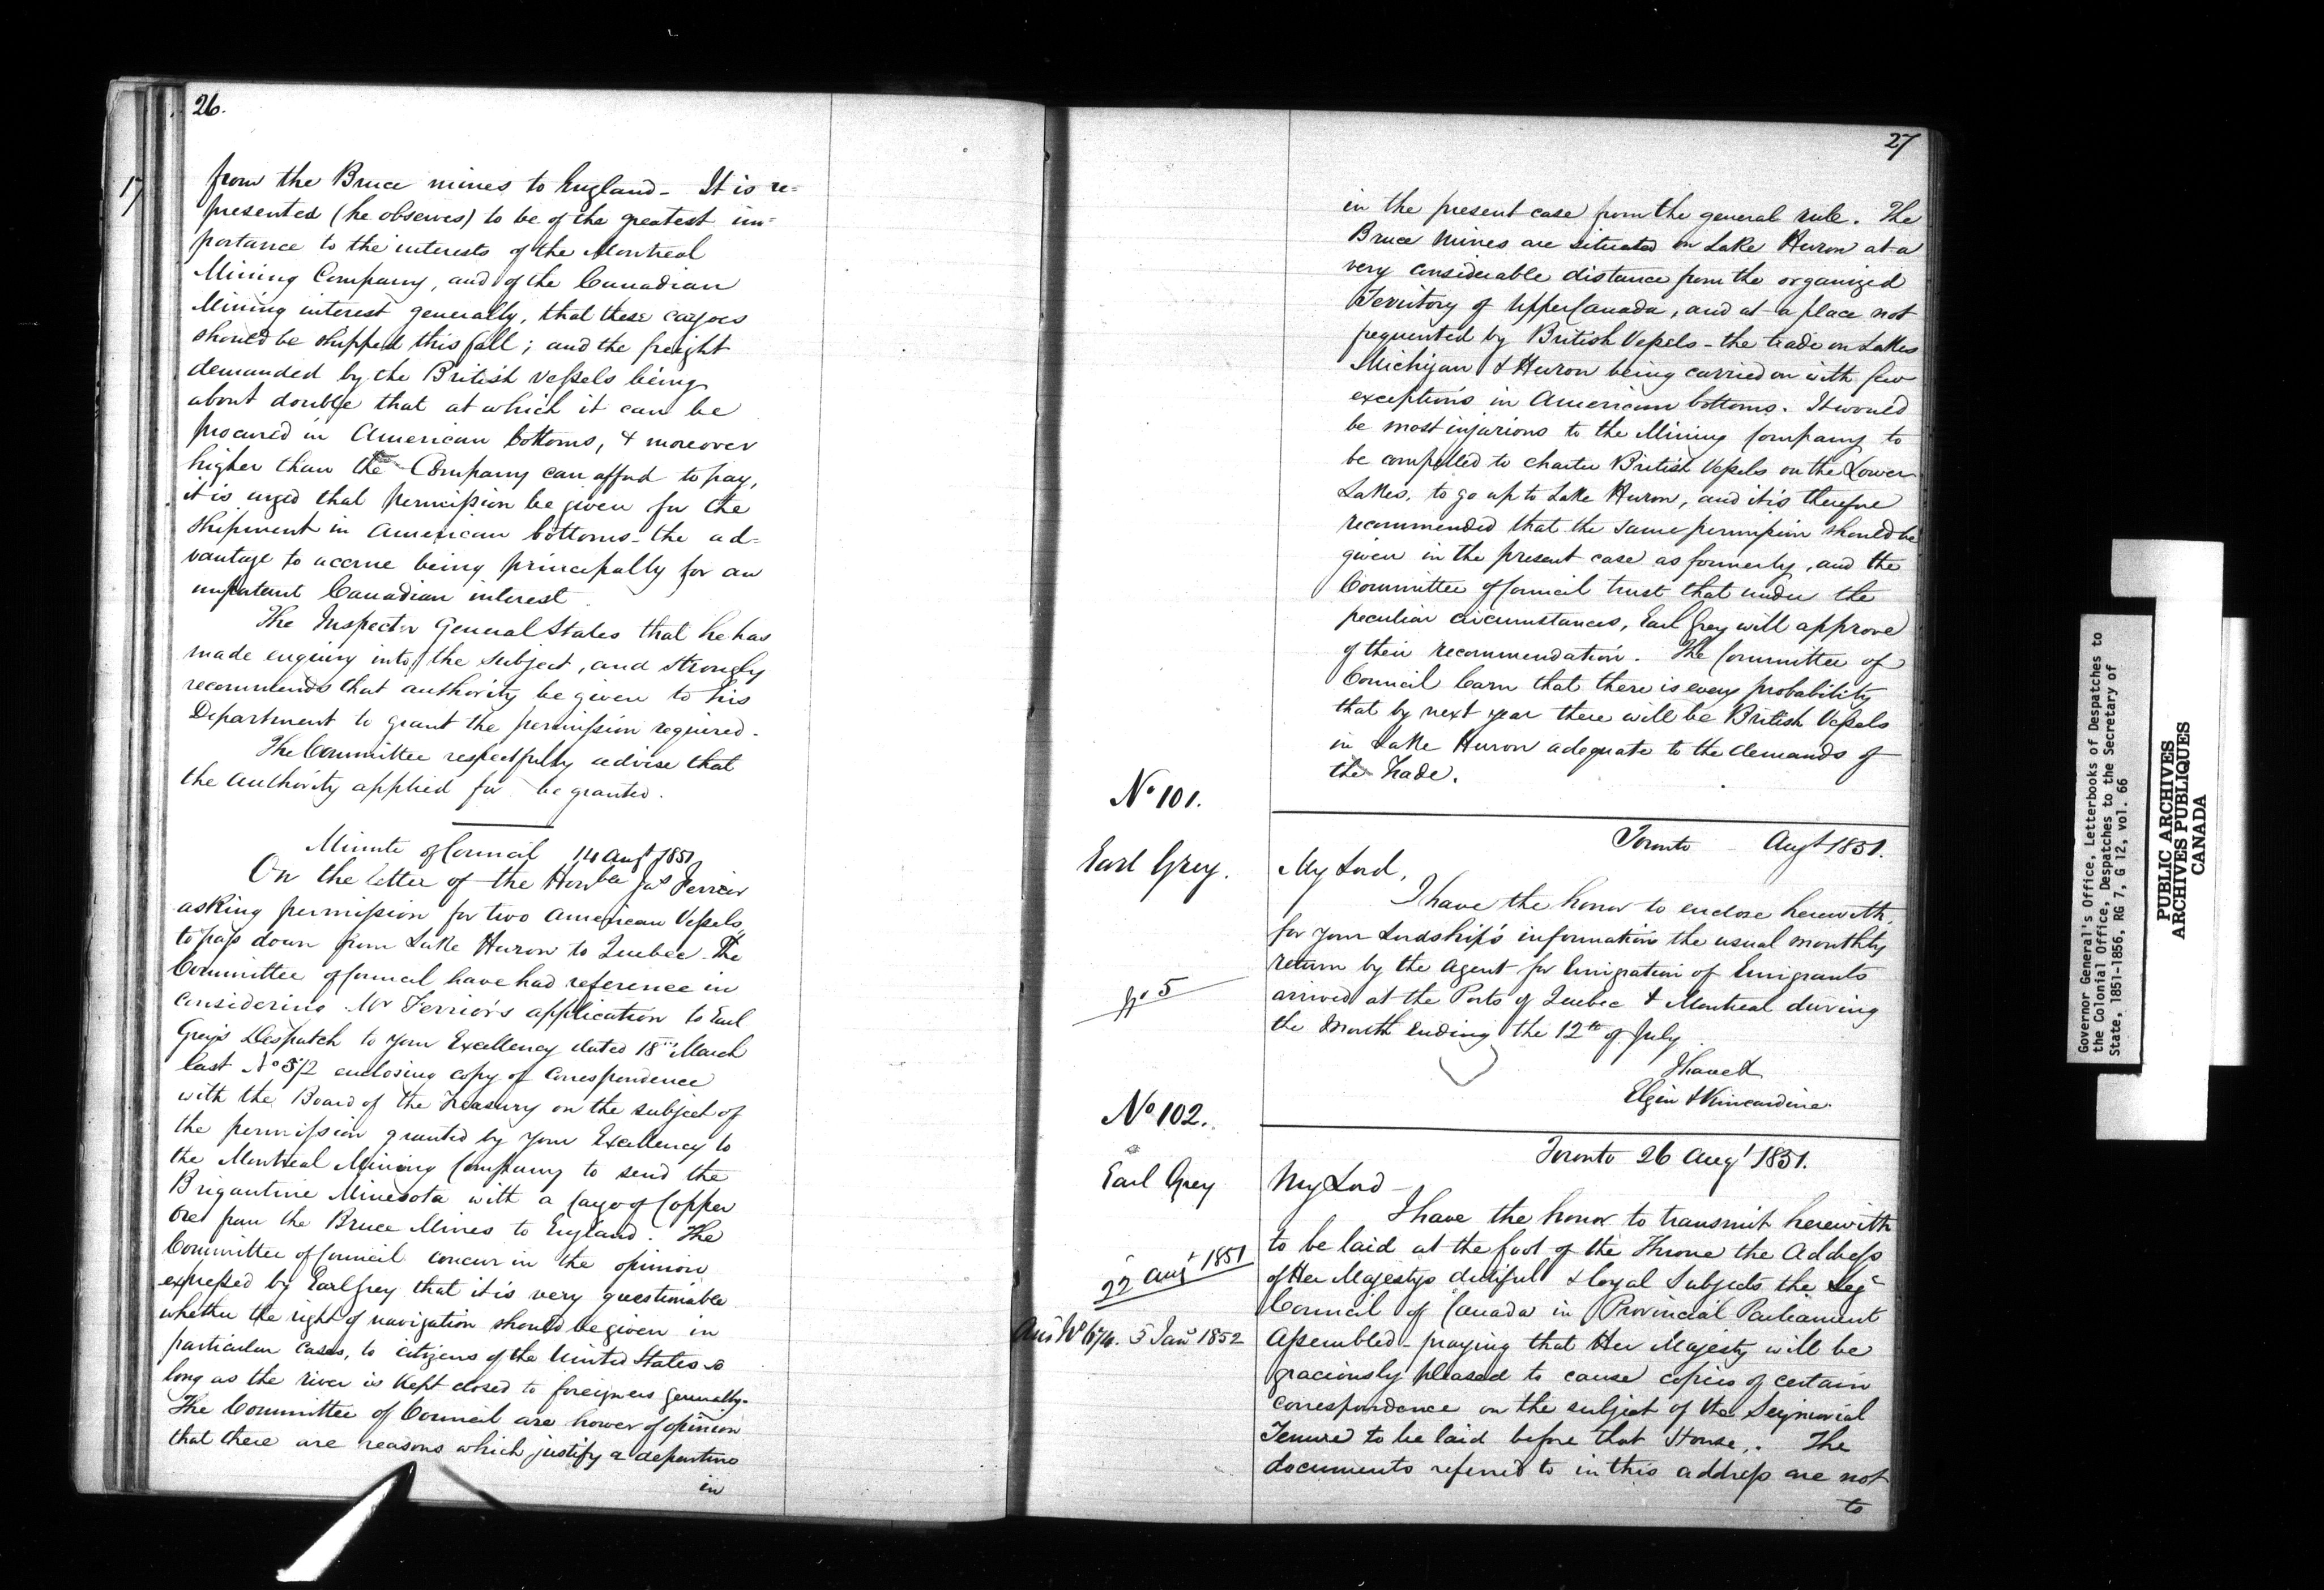 26.
17
from the Bruce mines to England - It is re=
presented (he observes) to be of the greatest im=
portance to the interests of the Montreal
Mining Company, and of the Canadian
Mining interest generally, that these cargoes
should be shipped this fall; and the freight
demanded by the British vessels being
about double that at which it can be
procured in American bottoms, & moreover
higher than the Company can afford to pay,
it is urged that permission be given for the
shipment in American bottoms - the ad=
vantage to accrue being principally for an
important Canadian interest
The Inspector General States that he has
made enquiry into the subject, and strongly
recommends that authority be given to his
Department to grant the permission required.
The Committee respectfully advise that
the authority applied for be granted.
Minute of Council 14 Augt 1851
On the letter of the Honble Jas Ferrier
asking permission for two American Vessels
to pass down from Lake Huron to Quebec. The
Committee of Council have had reference in
considering Mr Ferrior's application to Earl
Greys Despatch to your Excellency dated 18th March
last No 572 enclosing copy of correspondence
with the Board of the Treasury on the subject of
the permission granted by your Excellency to
the Montreal Mining Company to send the
Brigantine Minesota with a cargo of Copper
Ore from the Bruce Mines to England. The
Committee of Council concur in the opinion
expressed by Earl Grey that it is very questionable
whether the right of navigation should be given in
particular cases, to citizens of the United States so
long as the river is kept closed to foreigners generally.
The Committee of Council are however of opinion
that there are reasons which justify a departure
in
27
in the present case from the general rule. The
Bruce Mines are situated on Lake Huron at a
very considerable distance from the organized
Territory of Upper Canada, and at a place not
frequented by British Vessels - the trade on Lakes
Michigan & Huron being carried on with few
exceptions in American bottoms. It would
be most injurious to the Mining Company to
be compelled to charter British Vessels on the Lower
Lakes, to go up to Lake Huron, and it is therefore
recommended that the same permission should be
given in the present case as formerly, and the
Committee of Council trust that under the
peculiar circumstances, Earl Grey will approve
of their recommendation. The Committee of
Council learn that there is every probability
that by next year there will be British Vessels
in Lake Huron adequate to the demands of
the Trade.
No 101.
Earl Grey.
Toronto - Augt 1851.
My Lord,
I have the honor to enclose herewith,
for your Lordship's information the usual monthly
return by the Agent for Emigration of Emigrants
arrived at the Ports of Quebec & Montreal during
the Month ending the 12th of July
I have &
Elgin & Kincardine.
No 102.
Earl Grey
22 Augt 1851
Ans No 674. 5 Jany 1852
Toronto 26 Augt 1851.
My Lord -
I have the honor to transmit herewith
to be laid at the foot of the Throne the Address
of Her Majestys dutiful & loyal Subjects the Leg
Council of Canada in Provincial Parliament
Assembled - praying that Her Majesty will be
graciously pleased to cause copies of certain
correspondence on the subject of the Seignorial
Tenure to be laid before that House. The
documents referred to in this address are not
to
Governor General's Office, Letterbooks of Despatches to
the Colonial Office, Despatches to the Secretary of
State, 1851-1856, RG 7, G 12, vol. 66
PUBLIC ARCHIVES
ARCHIVES PUBLIQUES
CANADA